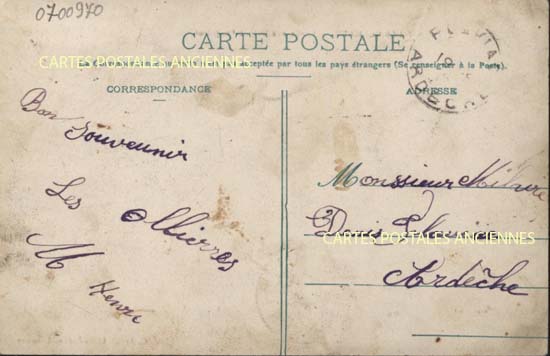 0700970
CARTE POSTALE
CARTES POSTALES ANCIENNES
acceptée par tous les pays étrangers (Se renseigner à la Poste).
CORRESPONDANCE
ADRESSE
ARDECHE
Bon
Souvenir
Les Ollierres
M Henri
Monsieur
CARTES POSTALES ANCIENNES
Ardèche